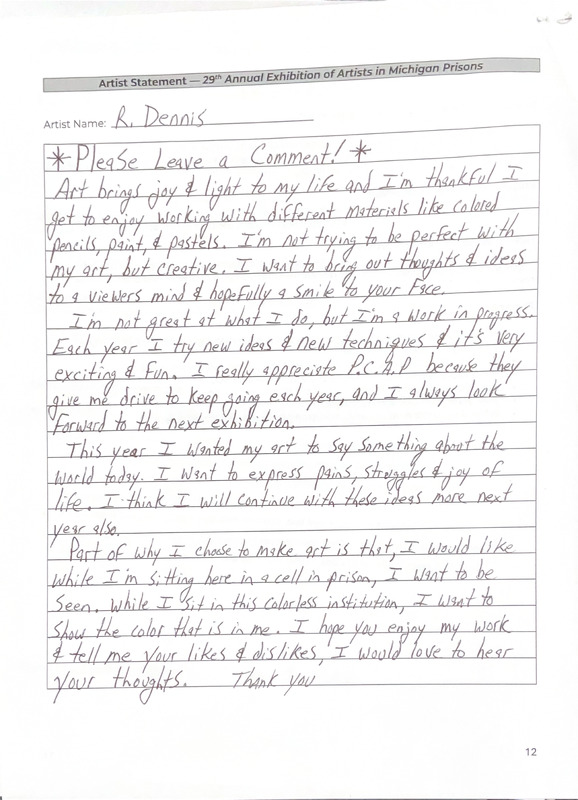 Artist Statement — 29th Annual Exhibition of Artists in Michigan Prisons
Artist Name: R. Dennis
*Please Leave a Comment! *
Art brings joy & light to my life and I'm thankful I
get to enjoy working with different materials like colored
pencils, paint, & pastels. I'm not trying to be perfect with
my art, but creative. I want to bring out thoughts & ideas
to a viewers mind & hopefully a smile to your face.
I'm not great at what I do, but I'm a work in progress.
Each year I try new ideas & new techniques & it's very
exciting & fun. I really appreciate P.C.A.P because they
give me drive to keep going each year, and I always look
forward to the next exhibition.
This year I wanted my art to say something about the
world today. I want to express pains, struggles & joy of
life. I think I will continue with these ideas more next
year also.
Part of why I choose to make art is that, I would like
while I'm sitting here in a cell in prison, I want to be
seen. While I sit in this colorless institution, I want to
show the color that is in me. I hope you enjoy my work
& tell me your likes & dislikes, I would love to hear
your thoughts. Thank you
12